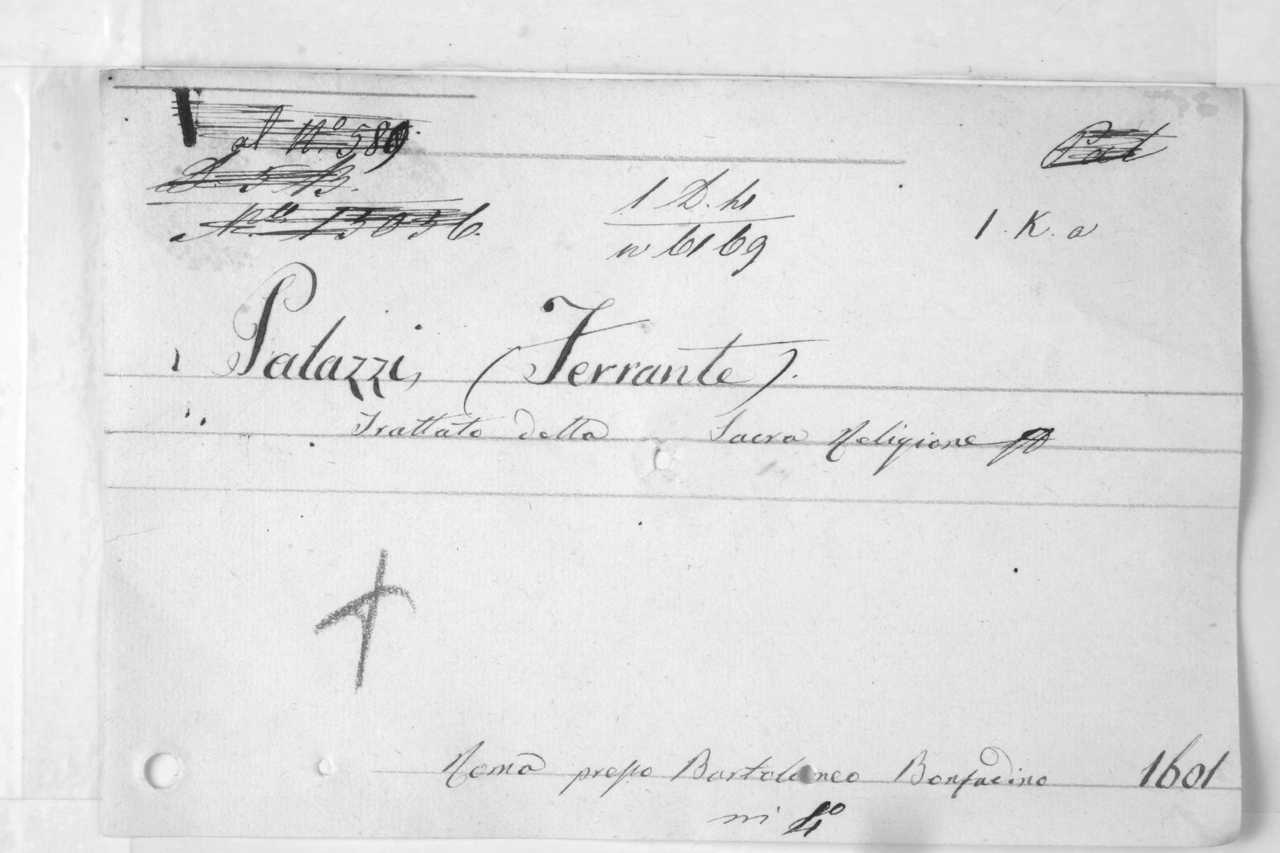 al N.º 589
N.ro 15036.
1 D. h1
n 6169
1. K. a
Palazzi, (Ferrante).
Trattato della Sacra Religione
Roma presso Bartolomeo Bonfadino 1601
in 4º